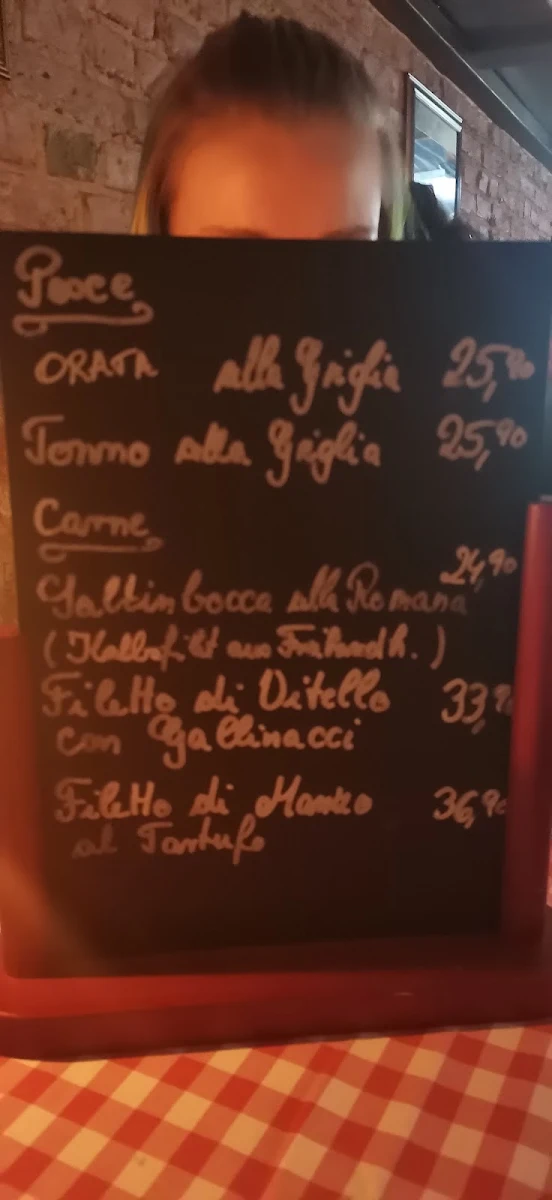 Pesce
ORATA alla Griglia 25,90
Tonno alla Griglia 25,90
Carne
24,90
Saltimbocca alla Romana
(Kalbsfilet aus Frankreich.)
Filetto di Vitello 33,90
con Gallinacci
Filetto di Manzo 36,90
al Tartufo